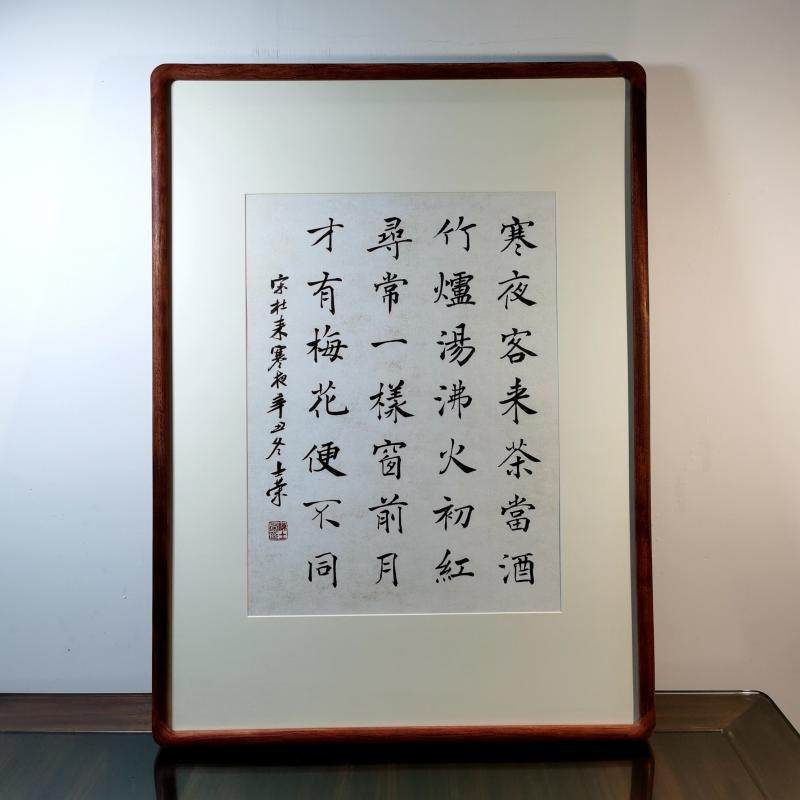 寒夜客来茶當酒
竹爐湯沸火初紅
尋常一樣窗前月
才有梅花便不同
宋杜来寒夜辛丑冬士荣